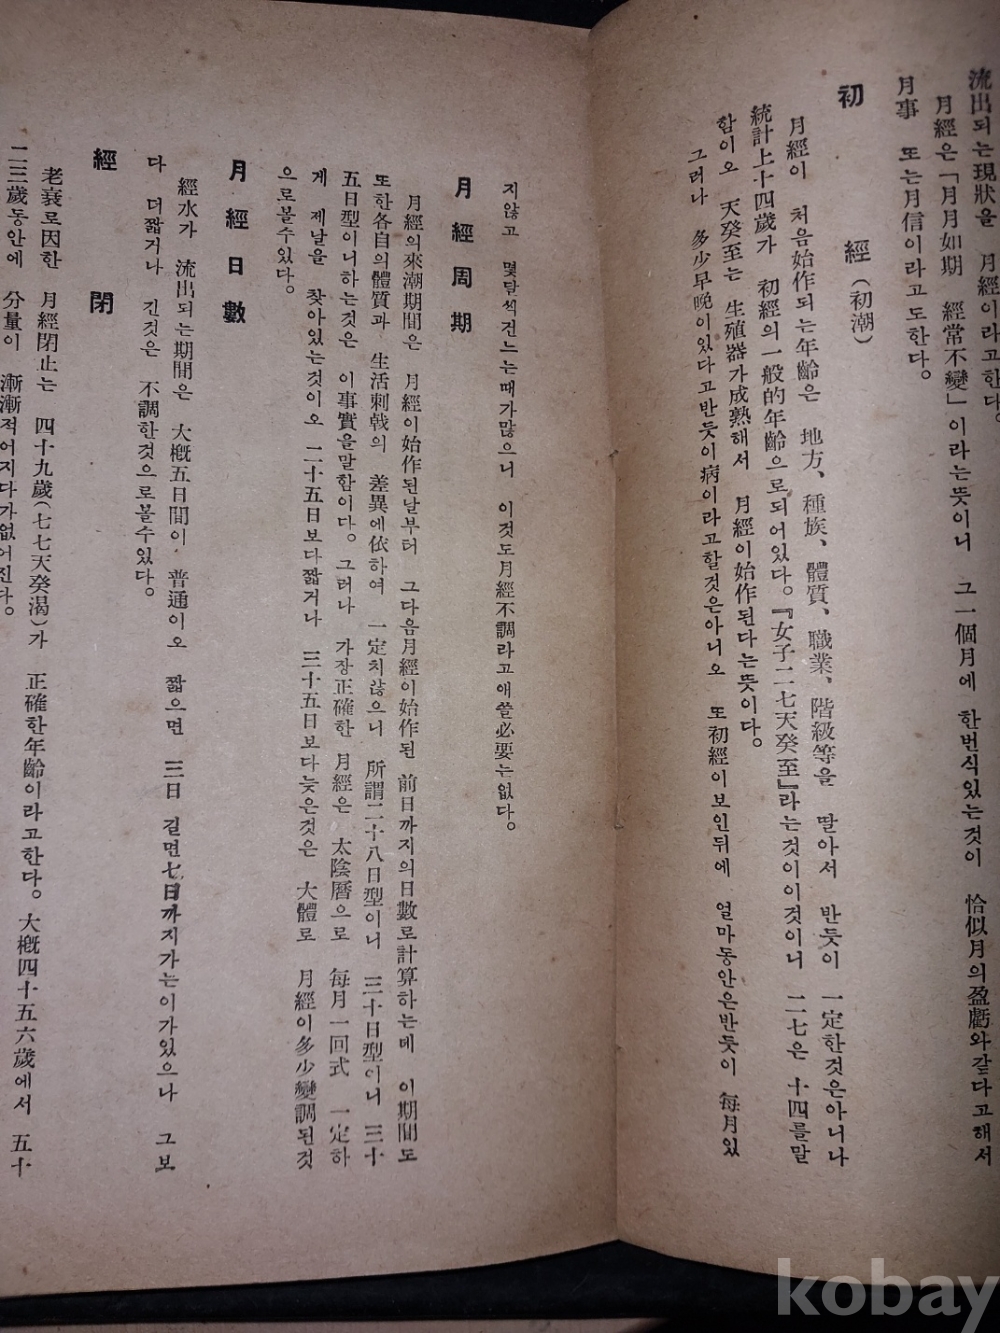 流出되는現狀을 月經이라고한다。
月經은「月月如期 經常不變」이라는뜻이니 그一個月에 한번식있는것이 恰似月의盈虧와같다고해서
月事 또는月信이라고도한다。
初 經(初潮)
月經이 처음始作되는年齡은 地方、種族、體質、職業、階級等을 딸아서 반듯이 一定한것은아니나
統計上十四歲가 初經의一般的年齡으로되어있다。『女子二七天癸至』라는것이이것이니 二七은 十四를말
함이오 天癸至는 生殖器가成熟해서 月經이始作된다는뜻이다。
그러나 多少早晩이있다고반듯이病이라고할것은아니오 또初經이보인뒤에 얼마동안은반듯이 每月있
지않고 몇달식건느는때가많으니 이것도月經不調라고애쓸必要는없다。
月經周期
月經의來潮期間은 月經이始作된날부터 그다음月經이始作된 前日까지의日數로計算하는데 이期間도
또한各自의體質과 生活刺戟의 差異에依하여 一定치않으니 所謂二十八日型이니 三十日型이니 三十
五日型이니하는것은 이事實을말함이다。그러나 가장正確한 月經은 太陰曆으로 每月一回式 一定하
게 제날을 찾아있는것이오 二十五日보다짧거나 三十五日보다늦은것은 大體로 月經이多少變調된것
으로볼수있다。
月經日數
經水가 流出되는期間은 大槪五日間이 普通이오 짧으면 三日 길면七日까지가는이가있으나 그보
다 더짧거나 긴것은 不調한것으로볼수있다。
經 閉
老衰로因한 月經閉止는 四十九歲(七七天癸渴)가 正確한年齡이라고한다。大槪四十五六歲에서 五十
二三歲동안에 分量이 漸漸적어지다가없어진다。
kobay